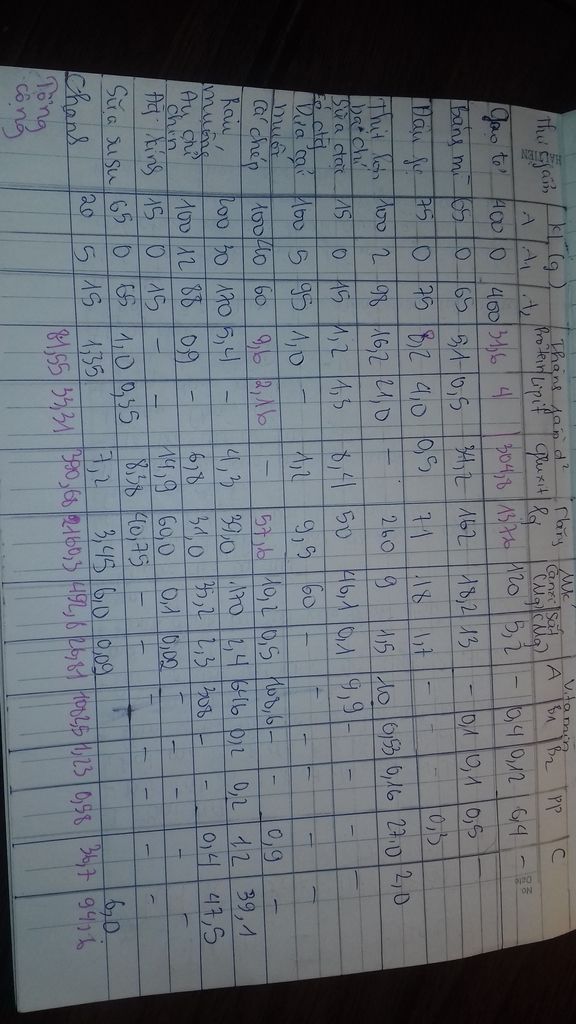 Thực phẩm K.l (g) Thành phần d² Năng MK Vitamin
A A₁ A₂ Protein Lipit Gluxit lg Canxi (Mg) Sắt (Mg) A B₁ B₂ PP C
Gạo tẻ 400 0 400 31,6 4 304,8 1376 120 5,2 - 0,4 0,12 6,4 -
Bánh mì 65 0 65 5,1 0,5 34,2 162 18,2 13 - 0,1 0,1 0,5 -
Đậu 75 0 75 8,2 4,0 0,5 71 18 1,7 - - - 0,3
Thịt lợn ba chỉ 100 2 98 16,2 21,0 - 260 9 1,5 10 0,53 0,16 27,0 2,0
Sữa đặc 15 0 15 1,2 1,3 8,4 50 46,1 0,1 9,9 - - - -
Dưa cải muối 100 5 95 1,0 - 1,2 9,5 60 - - - - - -
Cá chép 100 40 60 9,6 2,16 - 57,6 10,2 0,5 108,6 - - 0,9 -
Rau muống 200 30 170 5,4 - 4,3 39,0 170 2,4 646 0,2 0,2 1,2 39,1
chín 100 12 88 0,9 - 6,8 31,0 35,2 2,3 308 - - 0,4 47,5
15 0 15 - - 14,9 60,0 0,1 0,02 - - - - -
Sữa 65 0 65 1,0 0,35 8,38 40,75 - - - - - - -
Chanh 20 5 15 1,35 7,2 3,45 6,0 0,09 6,0
Tổng cộng 81,55 34,31 390,68 2160,3 492,8 26,81 1,23 0,58 36,7 94,6